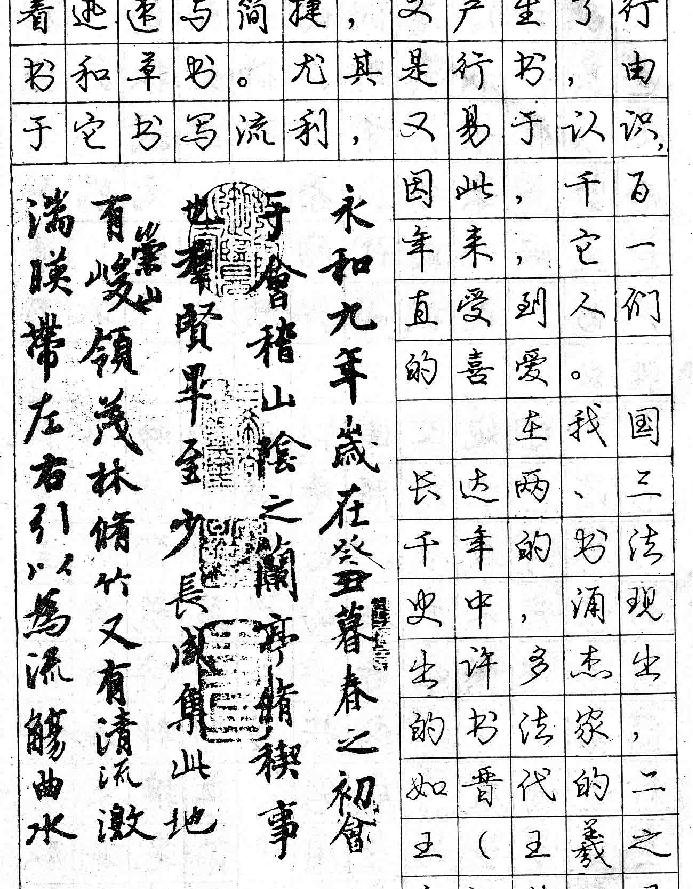 着迅速与简捷，又产生了行
书和草书。尤其是行书，由
于它书写流利，又易于认识，
因此，千百
年来，它一
直受到人们
的喜爱。
在我国
长达两、三
千年的书法
史中，涌现
出许多杰出
的书法家，
如晋代的二
王（王羲之
永和九年歲在癸丑暮春之初會
于會稽山陰之蘭亭脩稧事
也羣賢畢至少長咸集此地
有崇山峻領茂林脩竹又有清流激
湍暎帶左右引以為流觴曲水